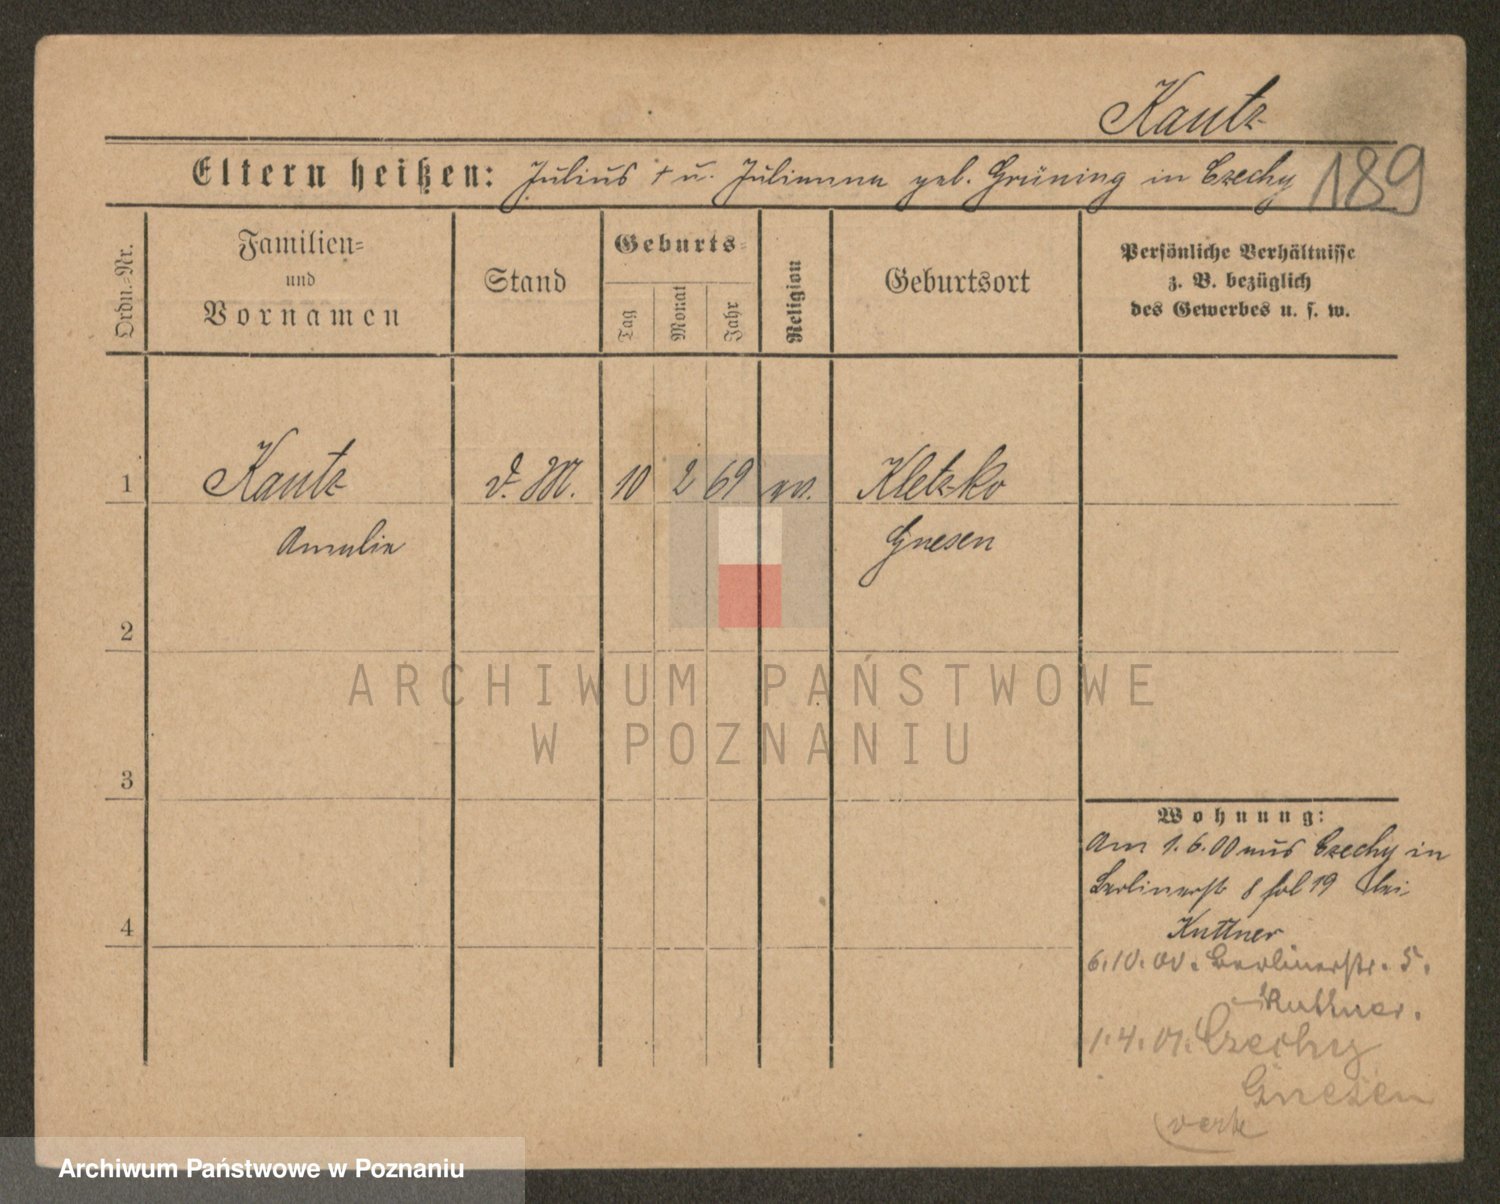 Kautz
Eltern heißen: Julius † u. Julianna geb. Grüning in Czechy
189
Ordn.-Nr.
Familien-
und
Vornamen
Stand
Geburts-
Tag
Monat
Jahr
Religion
Geburtsort
Persönliche Verhältnisse
z. B. bezüglich
des Gewerbes u. s. w.
1 Kautz d. M. 10 2 69 ev. Kletzko
Amalie Gnesen
2
ARCHIWUM PAŃSTWOWE
W POZNANIU
3
Wohnung:
Am 1.6.00 aus Czechy in
Berlinerstr 8 fol 19 bei
4
Kuttner
6.10.00. Berlinerstr. 5.
Kuttner.
1.4.01. Czechy
Gnesen
Archiwum Państwowe w Poznaniu